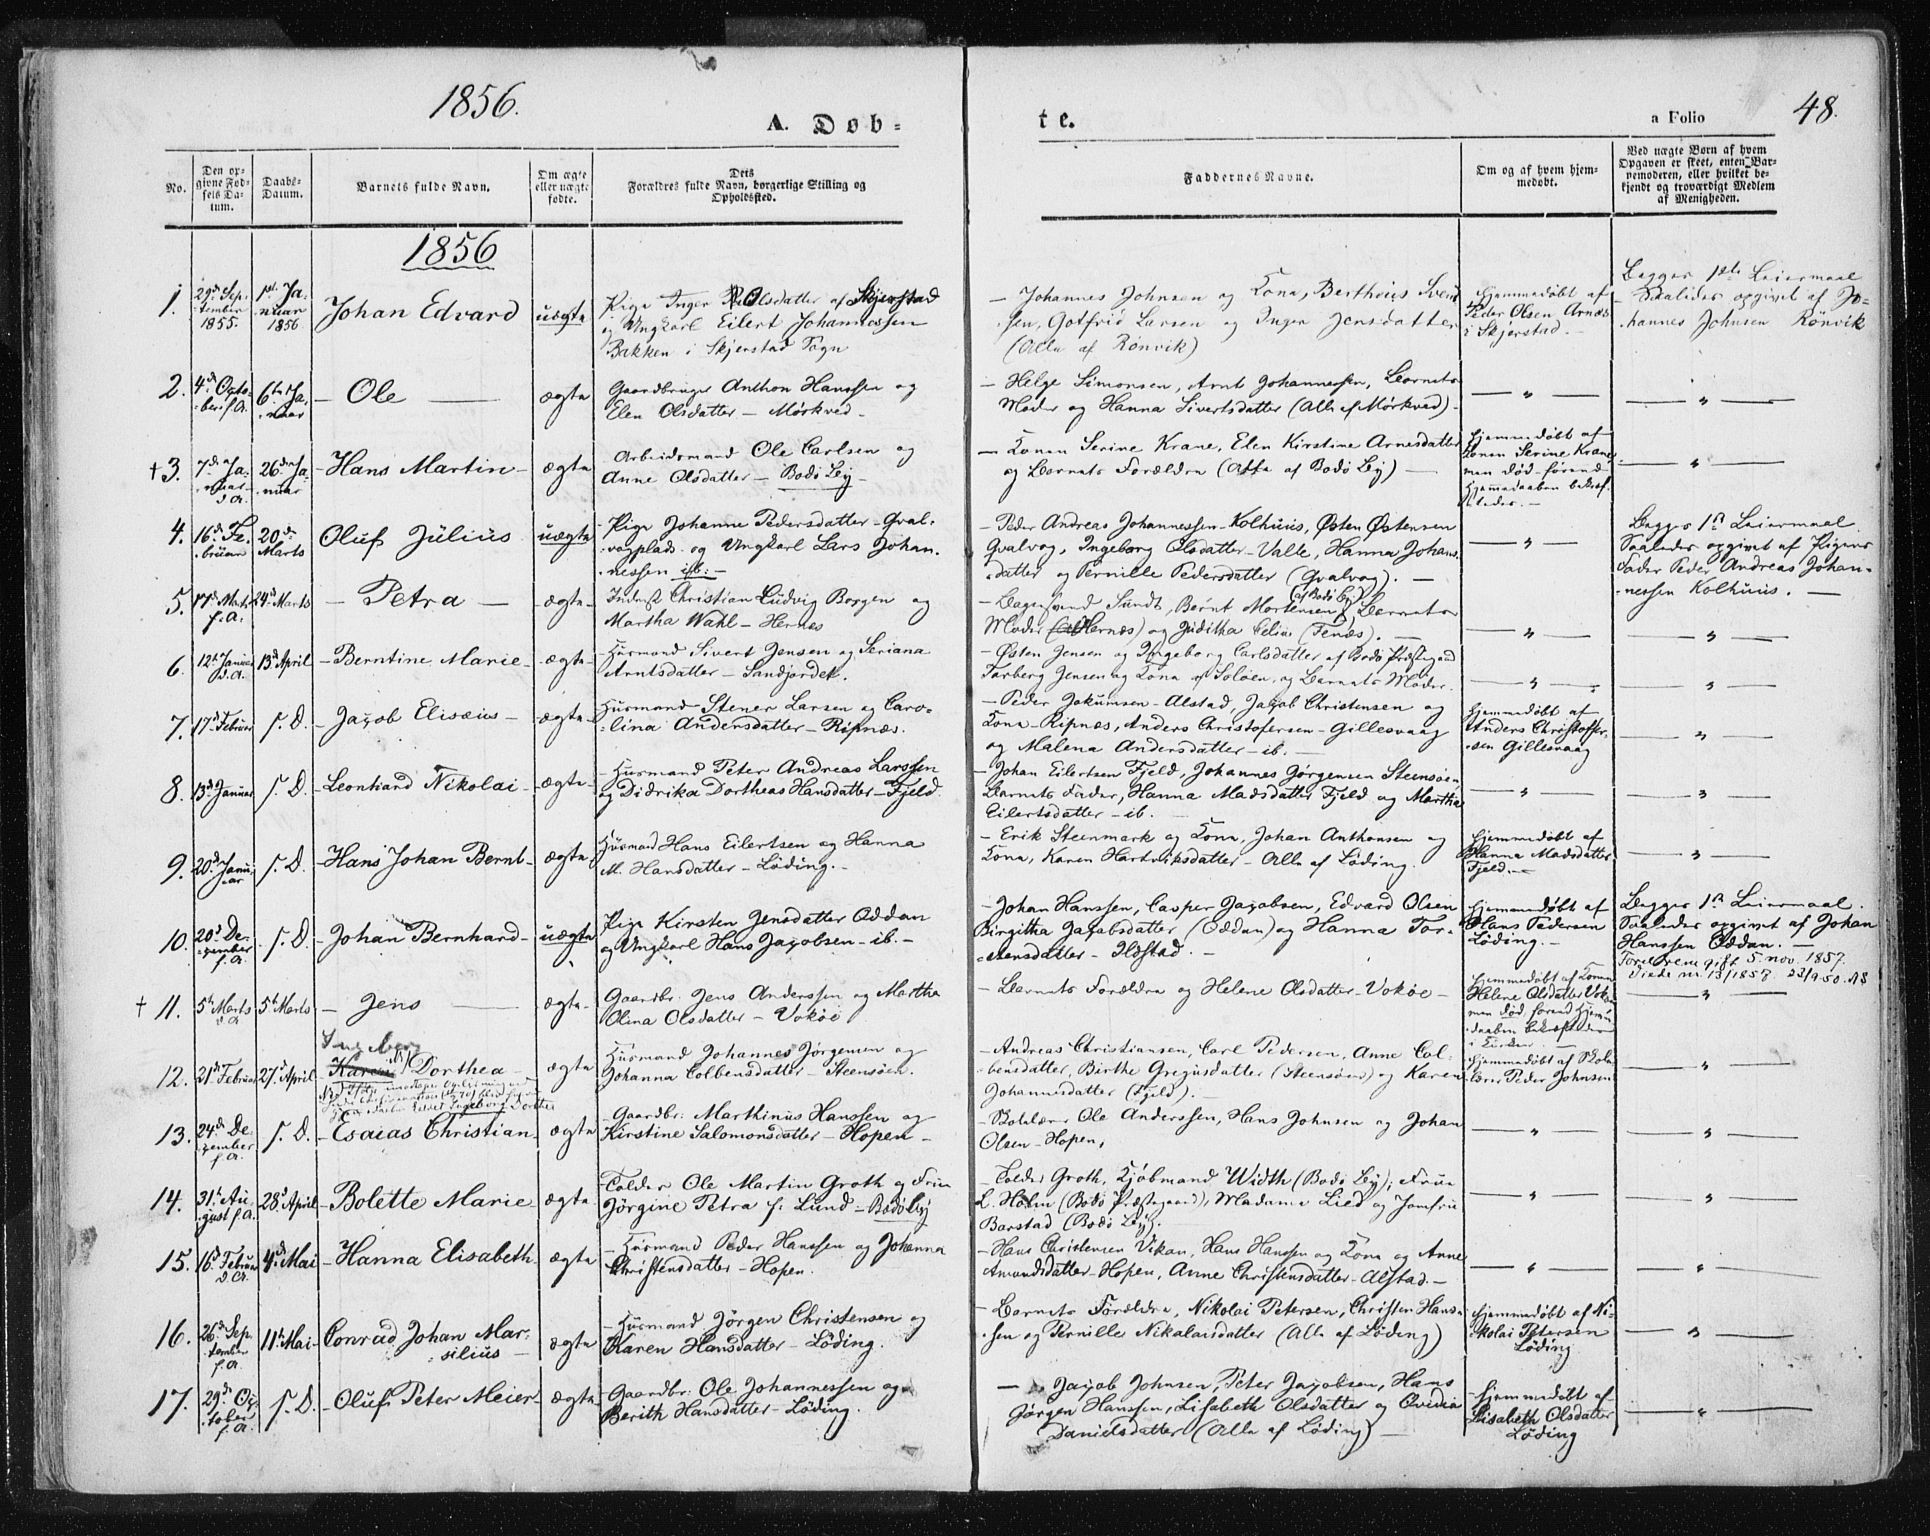 1856.
A. Døb-
te.
a Folio
48.
No.
Den op-
givne Fød-
sels Da-
tum.
Daabs-
Datum.
Barnets fulde Navn.
Om ægte
eller uægte
fødte.
Dets
Forældres fulde Navn, borgerlige Stilling og
Opholdssted.
Faddernes Navne.
Om og af hvem hjem-
medøbt.
Ved uægte Børn af hvem
Opgaven er skeet, enten Bar-
nemoderen, eller hvilket be-
kjendt og troværdigt Medlem
af Menigheden.
1856
1.
29d Sep-
tember
1855.
1ste Ja-
nuar
1856
Johan Edvard
uægte
Pige Inger Olsdatter af Skjerstad
og Ungkarl Eilert Johannessen
Bakken i Skjerstad Sogn
- Johannes Johnsen og Kona, Bertheus Svend-
sen, Gotfrid Larsen og Inger Jensdatter
(Alle af Rønvik)
Hjemmedøbt af
Peder Olsen Arnæs
i Skjerstad. -
Begges 1ste Leiermaal
Saaledes opgivet af Jo-
hannes Johnsen Rönvik
2.
4d Octo-
ber f. A.
6te Ja-
nuar
- Ole -
ægte
Gaardbruger Anthon Hanssen og
Elen Olsdatter - Mørkved -
- Helge Simonsen, Arnt Johannessen, Barnets
Moder og Hanna Sivertsdatter (Alle af Mørkved) -
- " -
- " -
† 3.
7d Ja-
nuar
d. A.
26d Ja-
nuar
- Hans Martin -
ægte
- Arbeidsmand Ole Carlsen og
Anne Olsdatter - Bodö By -
- Konen Serine Krane, Elen Kirstine Arnesdatter
og Barnets Forældre (Alle af Bodö By) -
Hjemmedøbt af
Konen Serine Krane
men död förend
Hjemmedaaben bekræf-
tedes. -
- " -
4.
16d Fe-
bruar
20de
Marts
Oluf Julius
uægte
- Pige Johanne Pedersdatter - Qval-
vagplads og Ungkarl Lars Johan-
nessen ib: -
- Peder Andreas Johannessen - Kolhuus, Østen Østensen
Qvalvog, Ingeborg Olsdatter - Valle, Hanna Johans-
datter og Pernille Pedersdatter (Qvalvog). -
- " -
Begges 1ste Leiermaal.
Saaledes opgivet af Pigens
Fader Peder Andreas Johan-
nessen Kolhuus. -
5.
f. A.
24d Marts
- Petra -
ægte
Christian Ludvig Borgen og
Martha Wahl - Hernes
Sundt, Bernt Mortensen (af Bodö By), Barnets
Moder (Hernæs) og Juditha Celius (Fenæs). -
- " -
- " -
6
12te Januar
d. A.
13d April
- Berntine Marie -
ægte
- Huusmand Sivert Jensen og Seriana
Arntsdatter - Sandjordet.
- Østen Jensen og Ingeborg Carlsdatter af Bodö Præstegaard
Torberg Jensen og Kona af Soløen, og Barnets Moder.
- " -
- " -
7.
17d Februar
s. D.
- Jacob Elisæus -
ægte
Huusmand Stener Larsen og Caro-
lina Andersdatter - Ripnæs.
- Peder Jakumsen - Alstad, Jacob Christensen og
Kona - Ripnæs, Anders Christofersen - Gillesvaag
og Malena Andersdatter - ib. -
Hjemmedøbt af
Anders Christoffer-
sen Gillesvaag
- " -
8.
13d Januar
s. D.
- Leonhard Nikolai -
ægte
- Huusmand Peter Andreas Larssen
og Didrika Dortheas Hansdatter - Fjeld.
- Johan Eilertsen Fjeld, Johannes Jörgensen Steensöen,
Barnets Fader, Hanna Madsdatter Fjeld og Martha
Eilertsdatter - ib. -
- " -
- " -
9.
20d Janu-
ar
s. D.
- Hans Johan Bernt -
ægte
Huusmand Hans Eilertsen og Hanna
M. Hansdatter - Löding. -
- Erik Steenmark og Kona, Johan Anthonsen og
Kona, Karen Hartviksdatter - Alle af Löding.
Hjemmedøbt af
Hanna Madsdatter
Fjeld. -
- " -
10.
20d De-
cember
f. A.
s. D.
- Johan Bernhard -
uægte
Pige Kirsten Jensdatter Oddan
og Ungkarl Hans Jacobsen - ib. -
- Johan Hanssen, Casper Jacobsen, Edvard Olsen
Birgitha Jacobsdatter (Oddan) og Hanna Tor-
stensdatter - Ilstad. -
Hjemmedøbt af
Hans Pedersen
Löding. -
Begges 1ste Leiermaal.
Saaledes opgivet af Johan
Hanssen Oddan. -
Foreldrene gift 5. nov. 1857.
Viede nr. 13/1857. 23/9.50. AS
† 11.
5te Marts
d. A
5te Marts
- Jens -
ægte
- Gaardbr. Jens Anderssen og Martha
Olina Olsdatter - Vokøe
- Barnets Forældre og Helene Olsdatter - Vokøe -
Hjemmedøbt af Konen
Helene Olsdatter Vokøe
men död, forend Hjem-
daaben bekræftedes
i Kirken -
- " -
12.
21de Februar
27d April
Ingeborg
- Karen Dorthea -
ægte
Huusmand Johannes Jørgensen og
Johanna Colbensdatter - Steensöen.
- Andreas Christiansen, Carl Pedersen, Anne Col-
bensdatter, Birthe Gregusdatter (Steensöen) og Karen
Johannesdatter (Fjeld). -
Hjemmedøbt af Skole-
lærer Peder Johnsen
- " -
13.
24de De-
cember
f. A.
s. D.
- Esaias Christian
ægte
- Gaardbr: Marthinus Hanssen og
Kirstine Salomonsdatter - Hopen -
- Skolelærer Ole Anderssen, Hans Johnsen og Johan
Olsen - Hopen,
- " -
- " -
14.
31te Au-
gust f. A.
28d April
- Bolette Marie
ægte
- Tolder Ole Martin Groth og Frue
Jörgine Petra f. Lund - Bodö By
- Tolder Groth, Kjøbmand Width (Bodö By), Frue
L. Holm (Bodö Præstegaard), Madame Lied og Jomfru
Barstad (Bodö By).
- " -
- " -
15.
16d Februar
d. A.
4de Mai
- Hanna Elisabeth
ægte
- Huusmand Peder Hanssen og Johanna
Christensdatter - Hopen.
- Hans Christensen Vikan, Hans Hanssen og Kona og Anne
Amundsdatter - Hopen, Anne Christensdatter - Alstad. -
- " -
- " -
16.
26d Sep-
tember
f. A.
11te Mai
Conrad Johan Mar-
silius -
ægte
- Huusmand Jörgen Christensen og
Karen Hansdatter - Löding.
- Barnets Forældre, Nikolai Petersen, Christen Hans-
sen og Pernille Nikolaisdatter (Alle af Löding)
Hjemmedøbt af Ni-
kolai Petersen
Löding
- " -
17.
29de Oc-
tober
f. A.
s. D.
- Oluf Peter Meier -
ægte
- Gaardbr: Ole Johannessen og
Berith Hansdatter - Löding.
- Jacob Johnsen, Peter Jacobsen, Hans
Jörgen Hanssen, Lisabeth Olsdatter og Ovidia
Danielsdatter (Alle af Löding) -
- Hjemmedøbt af
Lisabeth Olsdatter
Löding
- " -